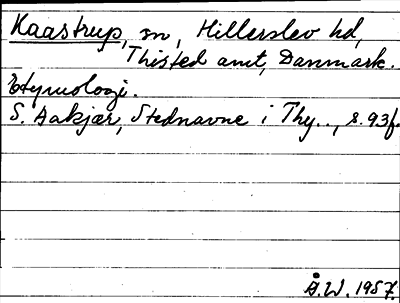 Kaastrup, sn, Hillerslev hd,
Thisted amt, Danmark.
Etymologi.
S. Aakjær, Stednavne i Thy.., s. 93f.
Å.W. 1957.